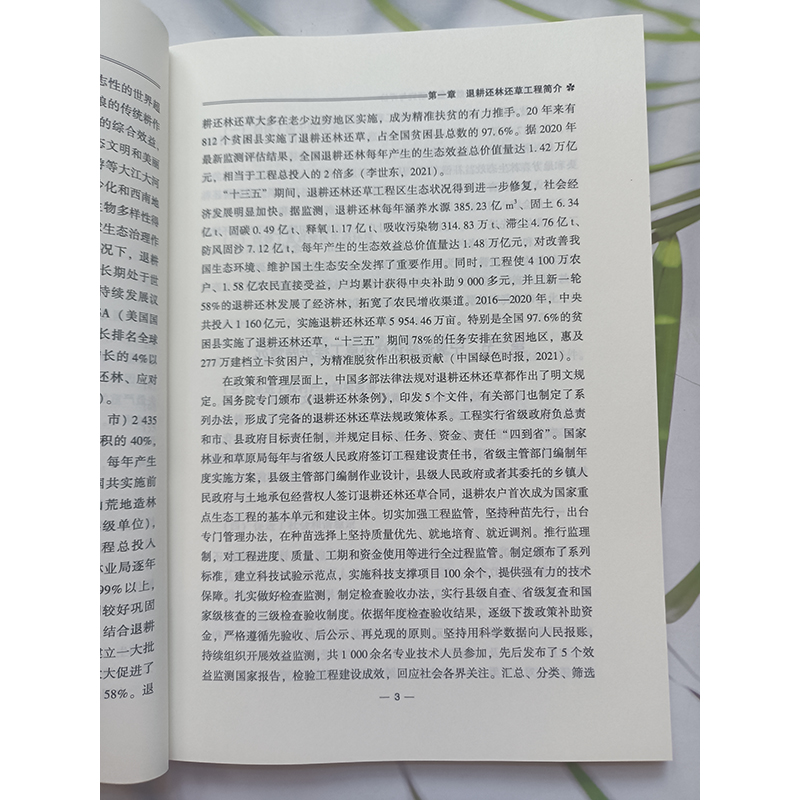 志性的世界超
的传统耕作
的综合效益，
态文明和美丽
等大江大河
少化和西南地
生物多样性得
生态治理作
况下，退耕
长期处于世
持续发展议
SA（美国国
长排名全球
长的 4%以
还林、应对
）。
市）2 435
积的 40%，
每年产生
国共实施前
山荒地造林
级单位），
程总投入
业局逐年
99%以上，
较好巩固
结合退耕
建立一大批
大促进了
58%。退
第一章 退耕还林还草工程简介
耕还林还草大多在老少边穷地区实施，成为精准扶贫的有力推手。20 年来有
812 个贫困县实施了退耕还林还草，占全国贫困县总数的 97.6%。据 2020 年
最新监测评估结果，全国退耕还林每年产生的生态效益总价值量达 1.42 万亿
元，相当于工程总投入的 2 倍多（李世东，2021）。
“十三五”期间，退耕还林还草工程区生态状况得到进一步修复，社会经
济发展明显加快。据监测，退耕还林每年涵养水源 385.23 亿 m³、固土 6.34
亿 t、固碳 0.49 亿 t、释氧 1.17 亿 t、吸收污染物 314.83 万 t、滞尘 4.76 亿 t、
防风固沙 7.12 亿 t，每年产生的生态效益总价值量达 1.48 万亿元，对改善我
国生态环境、维护国土生态安全发挥了重要作用。同时，工程使 4 100 万农
户、1.58 亿农民直接受益，户均累计获得中央补助 9 000 多元，并且新一轮
58%的退耕还林发展了经济林，拓宽了农民增收渠道。2016—2020 年，中央
共投入 1 160 亿元，实施退耕还林还草 5 954.46 万亩。特别是全国 97.6%的贫
困县实施了退耕还林还草，“十三五”期间 78%的任务安排在贫困地区，惠及
277 万建档立卡贫困户，为精准脱贫作出积极贡献（中国绿色时报，2021）。
在政策和管理层面上，中国多部法律法规对退耕还林还草都作出了明文规
定。国务院专门颁布《退耕还林条例》，印发 5 个文件，有关部门也制定了系
列办法，形成了完备的退耕还林还草法规政策体系。工程实行省级政府负总责
和市、县政府目标责任制，并规定目标、任务、资金、责任“四到省”。国家
林业和草原局每年与省级人民政府签订工程建设责任书，省级主管部门编制年
度实施方案，县级主管部门编制作业设计，县级人民政府或者其委托的乡镇人
民政府与土地承包经营权人签订退耕还林还草合同，退耕农户首次成为国家重
点生态工程的基本单元和建设主体。切实加强工程监管，坚持种苗先行，出台
专门管理办法，在种苗选择上坚持质量优先、就地培育、就近调剂。推行监理
制，对工程进度、质量、工期和资金使用等进行全过程监管。制定颁布了系列
标准，建立科技试验示范点，实施科技支撑项目 100 余个，提供强有力的技术
保障。扎实做好检查监测，制定检查验收办法，实行县级自查、省级复查和国
家级核查的三级检查验收制度。依据年度检查验收结果，逐级下拨政策补助资
金，严格遵循先验收、后公示、再兑现的原则。坚持用科学数据向人民报账，
持续组织开展效益监测，共 1 000 余名专业技术人员参加，先后发布了 5 个效
益监测国家报告，检验工程建设成效，回应社会各界关注。汇总、分类、筛选
— 3 —